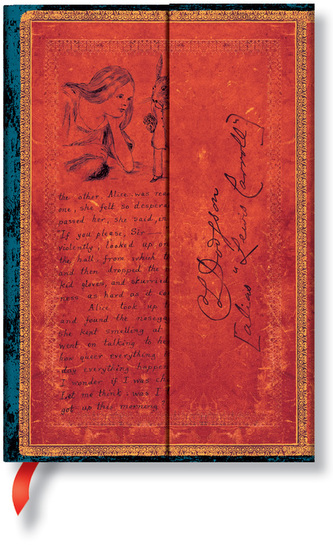 the other Alice was rea
one, she felt so despera
passed her, she said, in
If you please, Sir—
violently, looked up
the hall, from which t
and then dropped the
kid gloves, and skurried
as hard as it co
Alice took up
and found the nosega
she kept smelling at
went on talking to he
how queer everything
day everything happen
I wonder if I was ch
let me think: was I
got up this morning
C L Dodgson
(alias "Lewis Carroll")